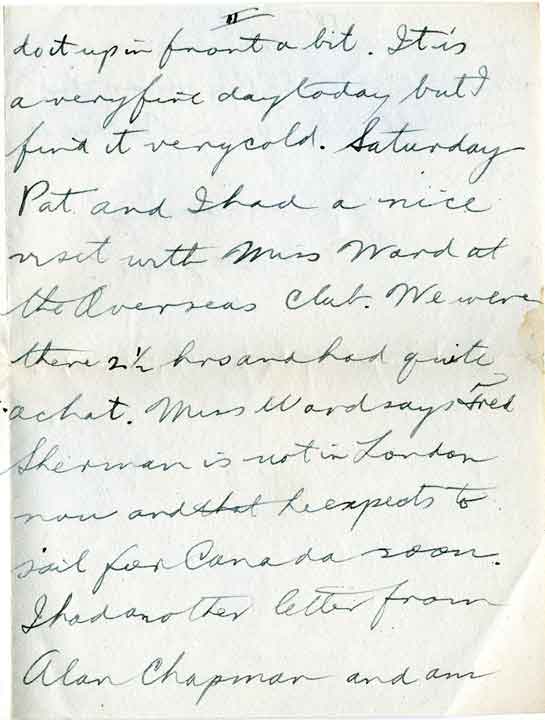 II
do it up in front a bit. It is
a very fine day today but I
find it very cold. Saturday
Pat and I had a nice
visit with Miss Ward at
the Overseas Club. We were
there 2½ hrs and had quite
a chat. Miss Ward says Fred
Sherman is not in London
now and that he expects to
sail for Canada soon.
I had another letter from
Alan Chapman and am